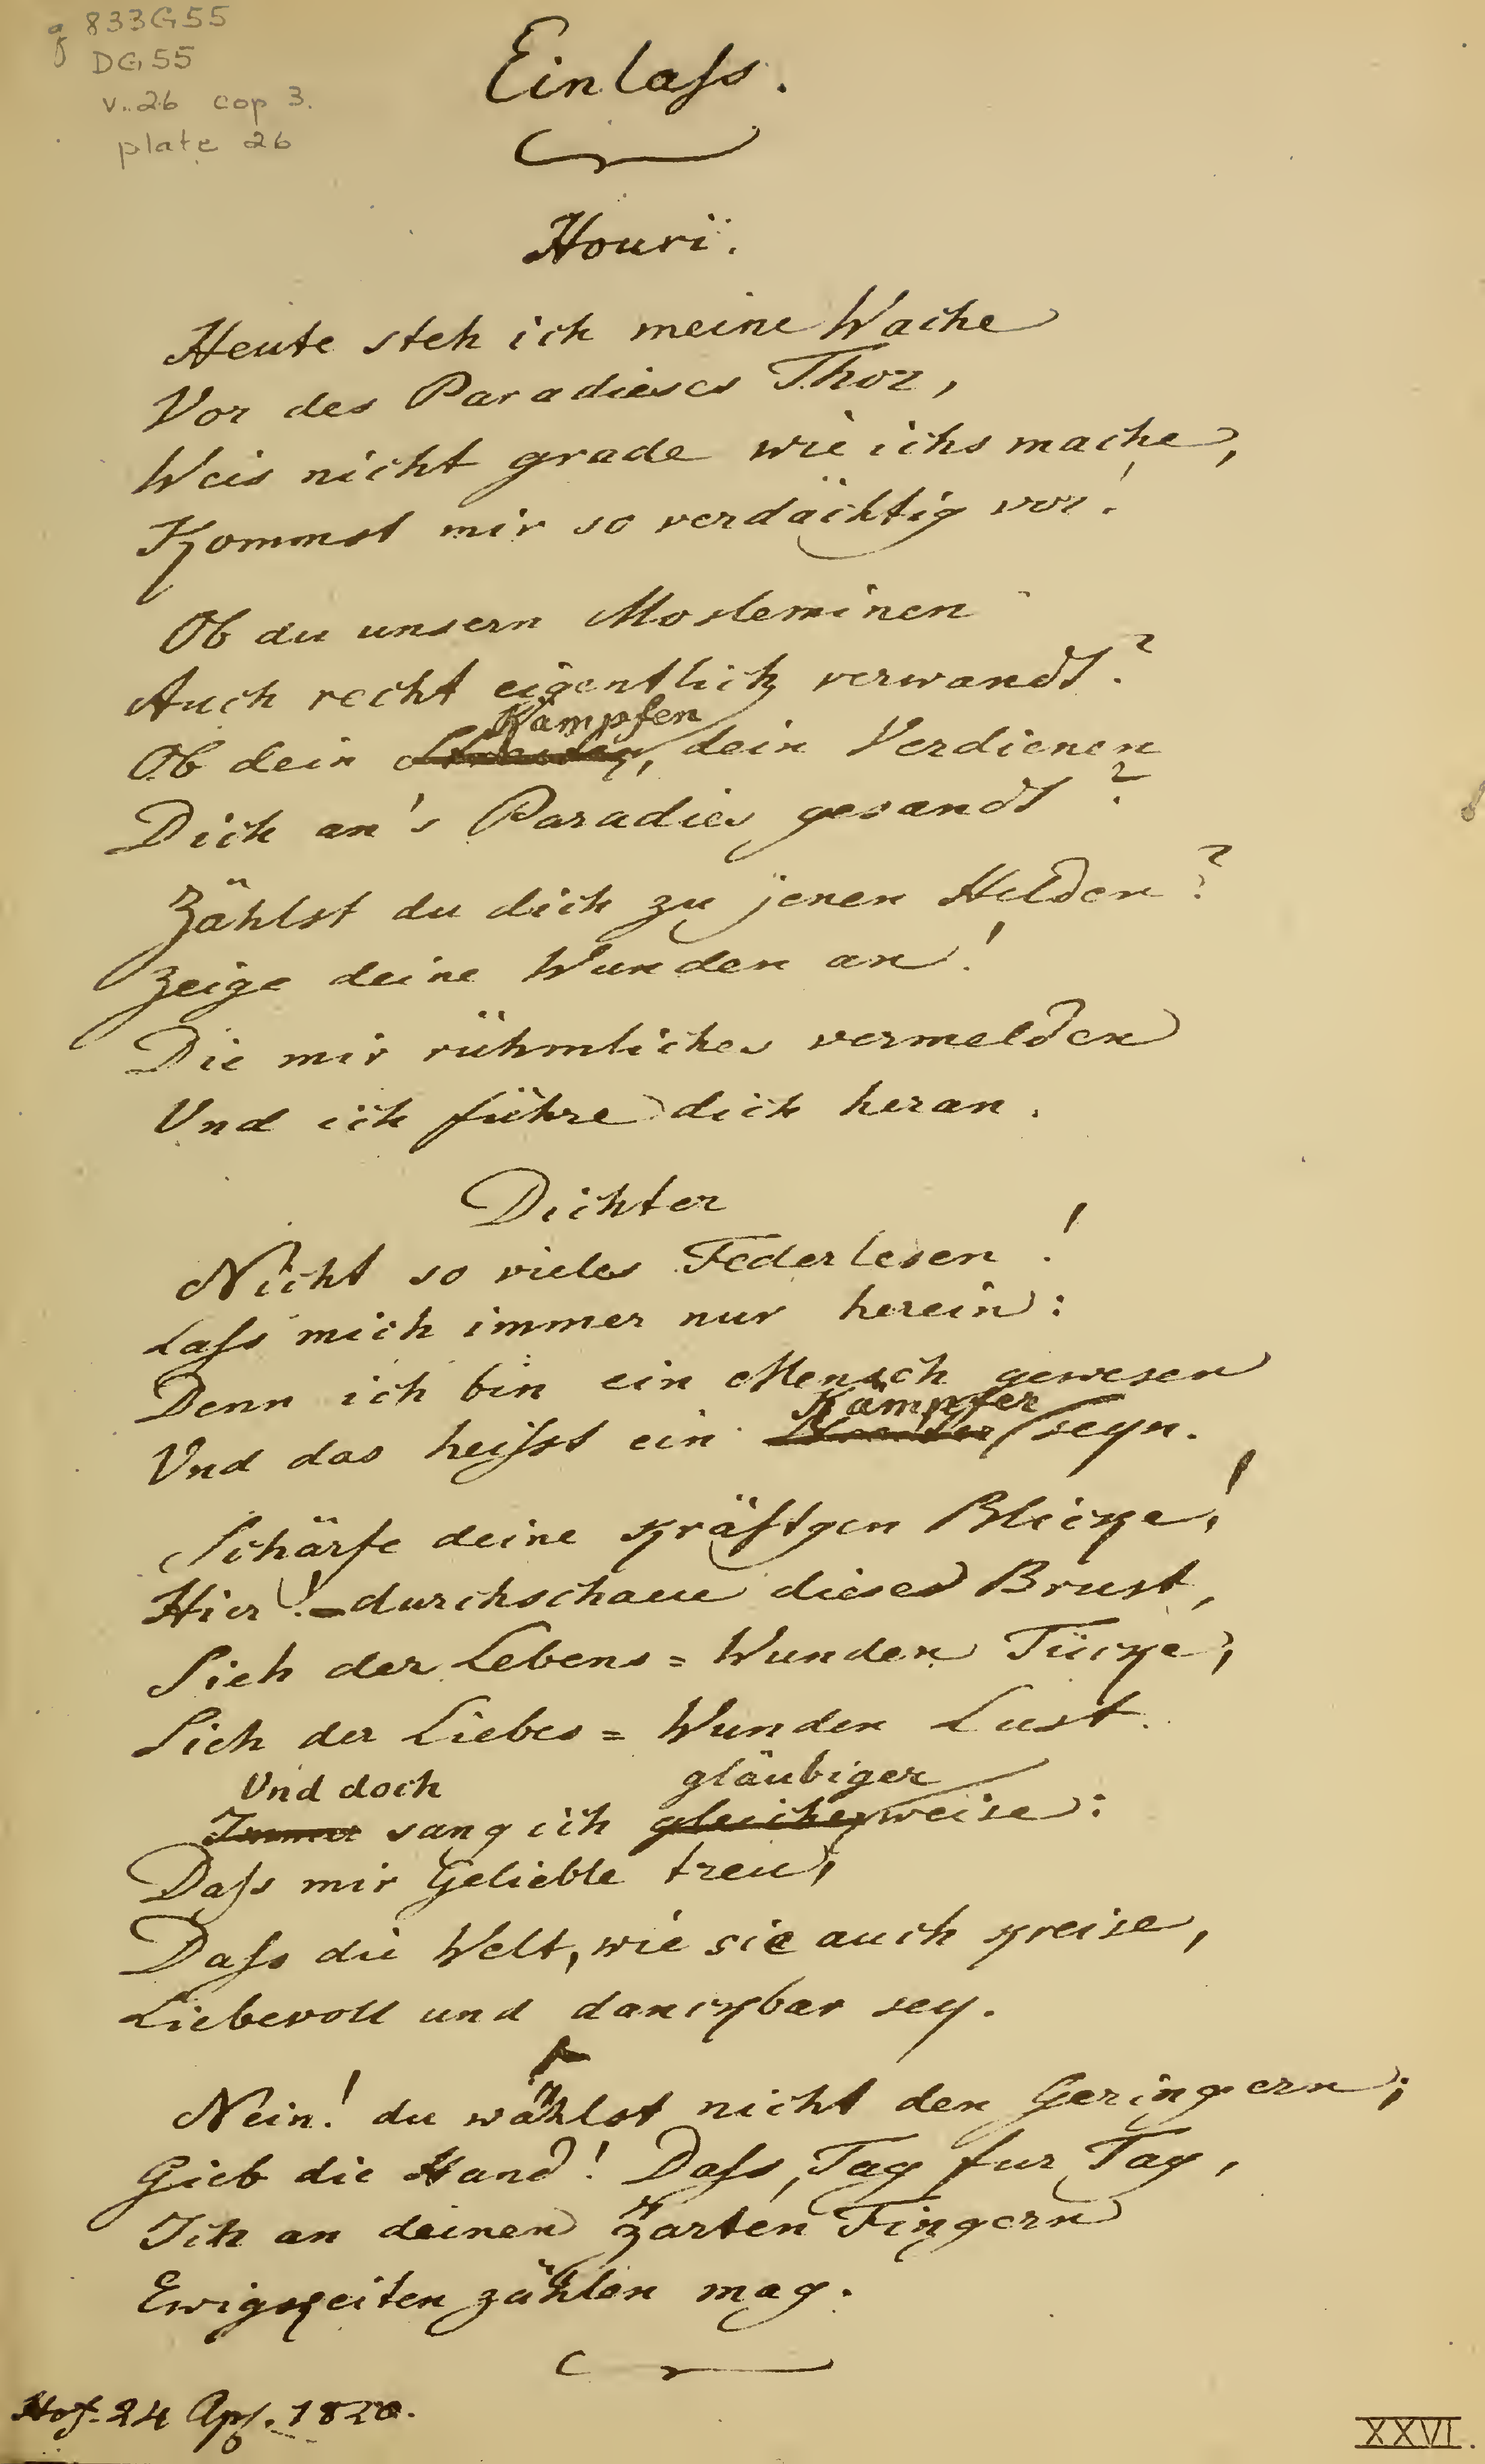 q 833G55
DG55
v. 26 cop 3.
plate 26
Einlaſs.
Houri.
Heute steh ich meine Wache
Vor des Paradieses Thor,
Weis nicht grade wie ichs mache,
Kommst mir so verdächtig vor!
Ob du unsern Mosleminen
Auch recht eigentlich verwandt?
Kämpfen
Ob dein dein Verdienen
Dich an's Paradies gesandt?
Zählst du dich zu jenen Helden?
Zeige deine Wunden an!
Die mir rühmliches vermelden
Und ich führe dich heran.
Dichter
Nicht so vieles Federlesen!
Laſs mich immer nur herein:
Denn ich bin ein Mensch gewesen
Kämpfer
Und das heiſst ein seyn.
Schärfe deine kräftgen Blicke!
Hier! durchschaue diese Brust,
Sieh der Lebens = Wunden Tücke,
Sieh der Liebes = Wunden Lust.
Und doch gläubiger
Immer sang ich gleicherweise:
Daſs mir Geliebte treu,
Daſs die Welt, wie sie auch kreise,
Liebevoll und danckbar sey.
Nein! du wählst nicht den Geringern;
Gieb die Hand! Daſs, Tag fur Tag,
Ich an deinen zarten Fingern
Ewigkeiten zählen mag.
Hof. 24 Apr. 1820.
XXVI.